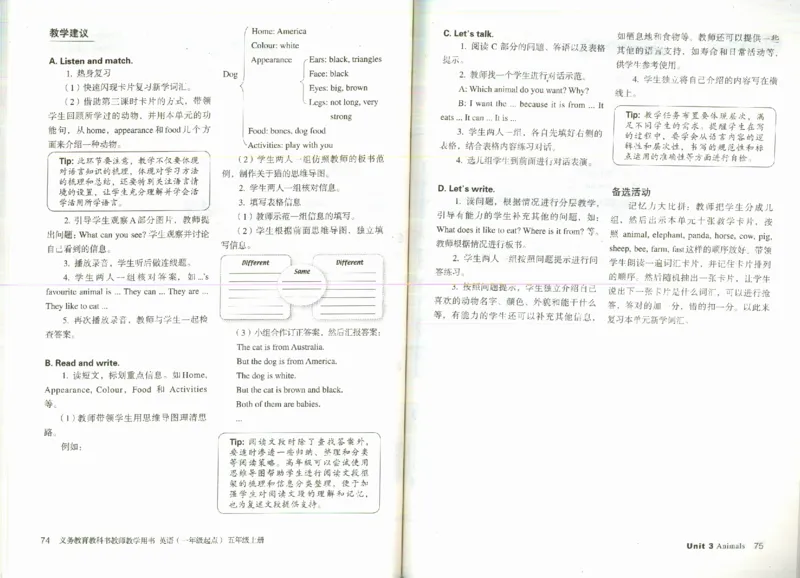 教学建议
A. Listen and match.
1. 热身复习
（1）快速闪现卡片复习新学词汇。
（2）借助第三课时卡片的方式，带领
学生回顾所学过的动物，并用本单元的功
能句，从home, appearance 和food 几个方
面来介绍一种动物。
Tip: 此环节要注意，教学不仅要体现
对语言知识的梳理，体现对学习方法
的梳理和总结，还要特别关注语言情
境的设置，让学生充分理解并学会活
学活用所学语言。
2. 引导学生观察A部分图片，教师提
出问题：What can you see? 学生观察并讨论
自己看到的信息。
3. 播放录音，学生听后做连线题。
4. 学生两人一组核对答案，如 ...'s
favourite animal is ... They can ... They are ...
They like to eat ...
5. 再次播放录音，教师与学生一起检
查答案。
B. Read and write.
1. 读短文，标划重点信息。如Home,
Appearance, Colour, Food 和 Activities
等。
（1）教师带领学生用思维导图理清思
路。
例如：
Dog
Home: America
Colour: white
Appearance
Ears: black, triangles
Face: black
Eyes: big, brown
Legs: not long, very
strong
Food: bones, dog food
Activities: play with you
（2）学生两人一组仿照教师的板书范
例，制作关于猫的思维导图。
2. 学生两人一组核对信息。
3. 填写表格信息
（1）教师示范一组信息的填写。
（2）学生根据前面思维导图，独立填
写信息。
Different
Same
Different
（3）小组合作订正答案，然后汇报答案：
The cat is from Australia.
But the dog is from America.
The dog is white.
But the cat is brown and black.
Both of them are babies.
...
Tip: 阅读文段时除了查找答案外，
要适时渗透一些归纳、整理和分类
等阅读策略。高年级可以尝试使用
思维导图帮助学生进行阅读文段框
架的梳理和信息分类整理，便于加
强学生对阅读文段的理解和记忆，
也为复述文段提供支持。
74 义务教育教科书教师教学用书 英语（一年级起点）五年级上册
C. Let's talk.
1. 阅读 C 部分的问题、答语以及表格
提示。
2. 教师找一个学生进行对话示范。
A: Which animal do you want? Why?
B: I want the ... because it is from ... It
eats ... It can ... It is ...
3. 学生两人一组，各自先填好右侧的
表格，结合表格内容练习对话。
4. 选几组学生到前面进行对话表演。
D. Let's write.
1. 读问题，根据情况进行分层教学，
引导有能力的学生补充其他的问题，如：
What does it like to eat? Where is it from? 等。
教师根据情况进行板书。
2. 学生两人一组按照问题提示进行问
答练习。
3. 按照问题提示，学生独立介绍自己
喜欢的动物名字、颜色、外貌和能干什么
等，有能力的学生还可以补充其他信息，
如栖息地和食物等。教师还可以提供一些
其他的语言支持，如寿命和日常活动等，
供学生参考使用。
4. 学生独立将自己介绍的内容写在横
线上。
Tip: 教学任务布置要体现层次，满
足不同学生的需求。提醒学生在写
的过程中，要学会从语言内容的逻
辑性和层次性，书写的规范性和标
点运用的准确性等方面进行自检。
备选活动
记忆力大比拼：教师把学生分成几
组，然后出示本单元十张教学卡片，按
照 animal, elephant, panda, horse, cow, pig,
sheep, bee, farm, fast这样的顺序放好。带领
学生朗读一遍词汇卡片，并记住卡片排列
的顺序。然后随机抽出一张卡片，让学生
说出下一张卡片是什么词汇，可以进行抢
答，答对的加一分，错的扣一分。以此来
复习本单元新学词汇。
Unit 3 Animals 75